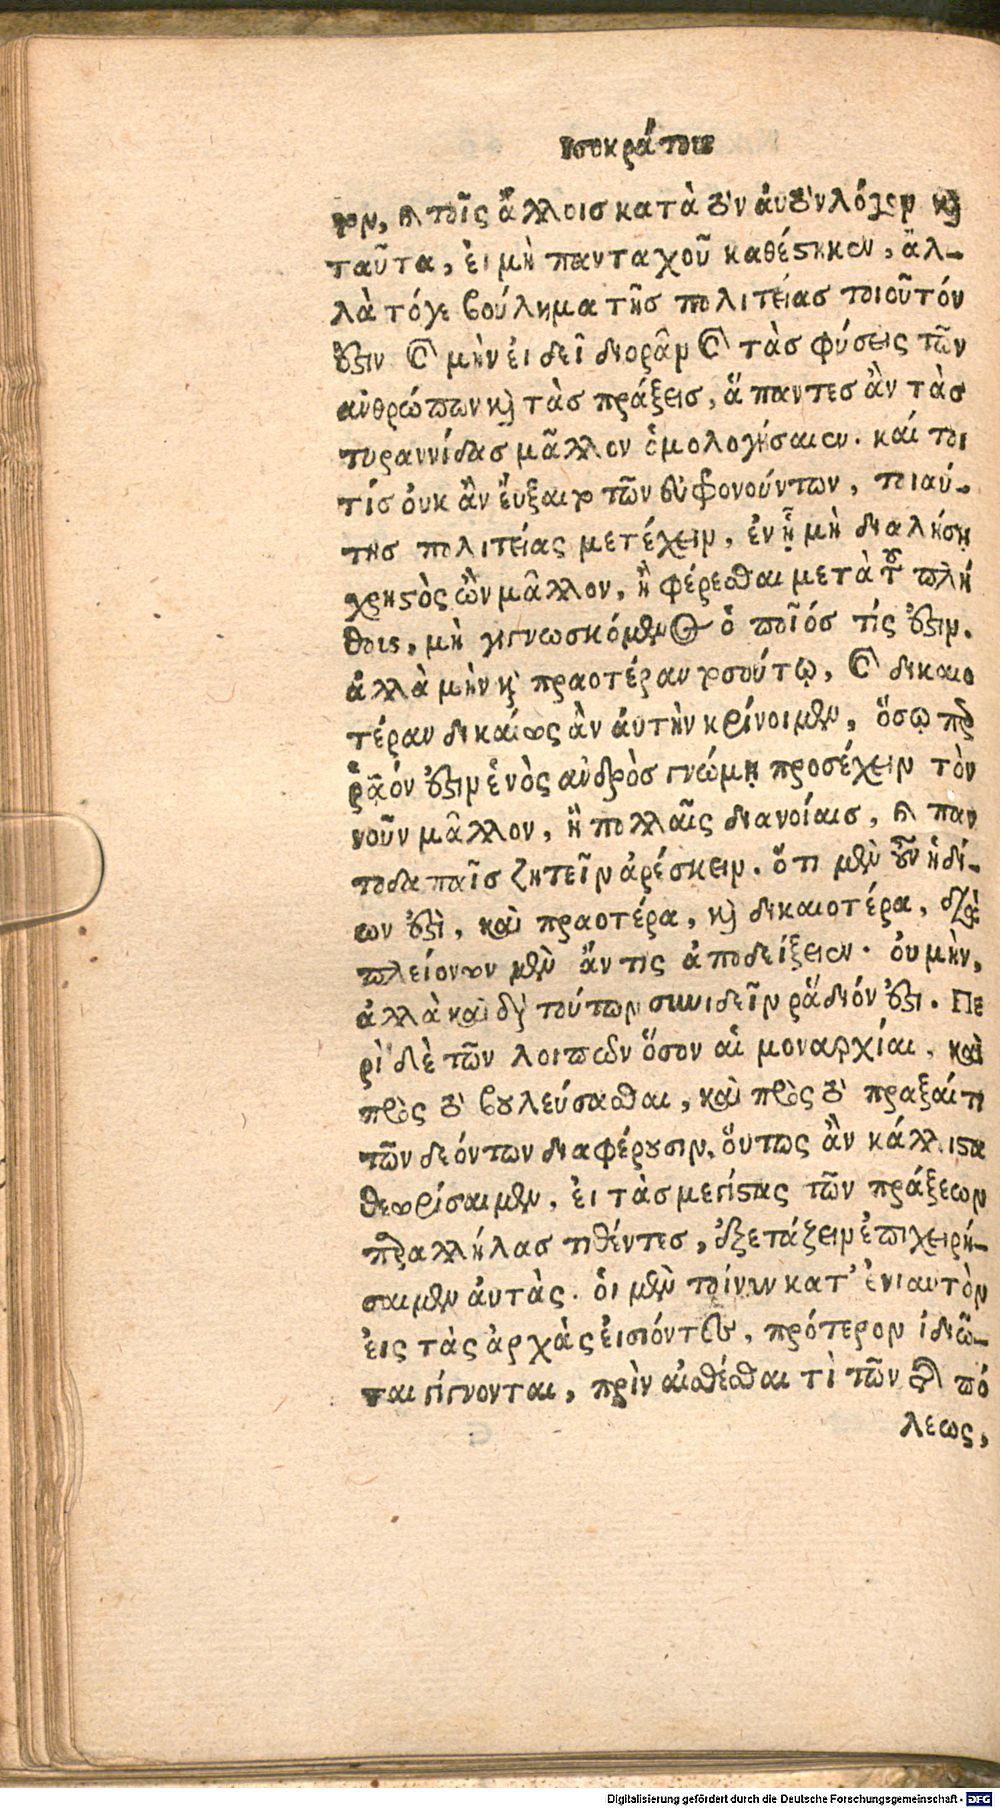 Ισοκράτους
τον, καὶ τοῖς ἄλλοισ κατὰ τὸν ἀυτὸν λόγον κὶ
ταῦτα, ἐι μὴ πανταχοῦ καθέστηκεν, ἄλ-
λὰ τόγε βούλημα τῆσ πολιτείασ τοιοῦτόν
ἐστιν καὶ μὴν ἐι δεῖ διορᾶν καὶ τὰσ φύσεις τῶν
ανθρώπων κὶ τὰσ πράξεισ, ἅπαντεσ ἂν τὰσ
τυραννίδασ μᾶλλον ὁμολογήσαιεν. καί τοι
τίσ ὀυκ ἂν ἔυξαιτο τῶν εὐφρονούντων, τοιαύ-
τησ πολιτείας μετέχειν, ἐν ᾗ μὴ διαλήσῃ
χρηστὸς ὢν μᾶλλον, ἢ φέρεσθαι μετὰ τοῦ πλή
θους, μὴ γιγνωσκόμενος ὁ ποῖόσ τίς ἐστιν.
ἀλλὰ μὴν κὶ πραοτέραν τοσούτῳ, καὶ δικαιο
τέραν δικαίως ἂν ἀυτὴν κρίνοιμεν, ὅσῳ περ
ῥᾷόν ἐστιν ἑνὸς ανδρὸσ γνώμῃ προσέχειν τὸν
νοῦν μᾶλλον, ἢ πολλαῖς διανοίαισ, καὶ παν
τοδαπαῖσ ζητεῖν ἀρέσκειν. ὅτι μὲν οὖν ἡδί-
ων ἐστὶ, καὶ πραοτέρα, κὶ δικαιοτέρα, διὰ
πλειόνων μὲν ἄν τις ἀποδείξειεν. ὀυ μὴν,
ἀλλὰ καὶ διὰ τούτων συνιδεῖν ῥᾴδιόν ἐστι. Πε
ρὶ δὲ τῶν λοιπῶν ὅσον αἱ μοναρχίαι, καὶ
πρὸς τὸ βουλεύσασθαι, καὶ πρὸς τὸ πρᾶξαί τι
τῶν δεόντων διαφέρουσιν, ὅυτως ἂν κάλλιστα
θεωρήσαιμεν, ἐι τὰσ μεγίστας τῶν πράξεων
παραλλήλασ τιθέντεσ, ἐξετάζειν ἐπιχειρή-
σαιμεν ἀυτὰς. ὁι μὲν τοίνυν κατ' ἐνιαυτὸν
ἐις τὰς ἀρχὰς ἐισιόντες, πρότερον ἰδιῶ-
ται γίγνονται, πρὶν αἰσθέσθαι τὶ τῶν τῆς πό
λεως,
Digitalisierung gefördert durch die Deutsche Forschungsgemeinschaft - DFG